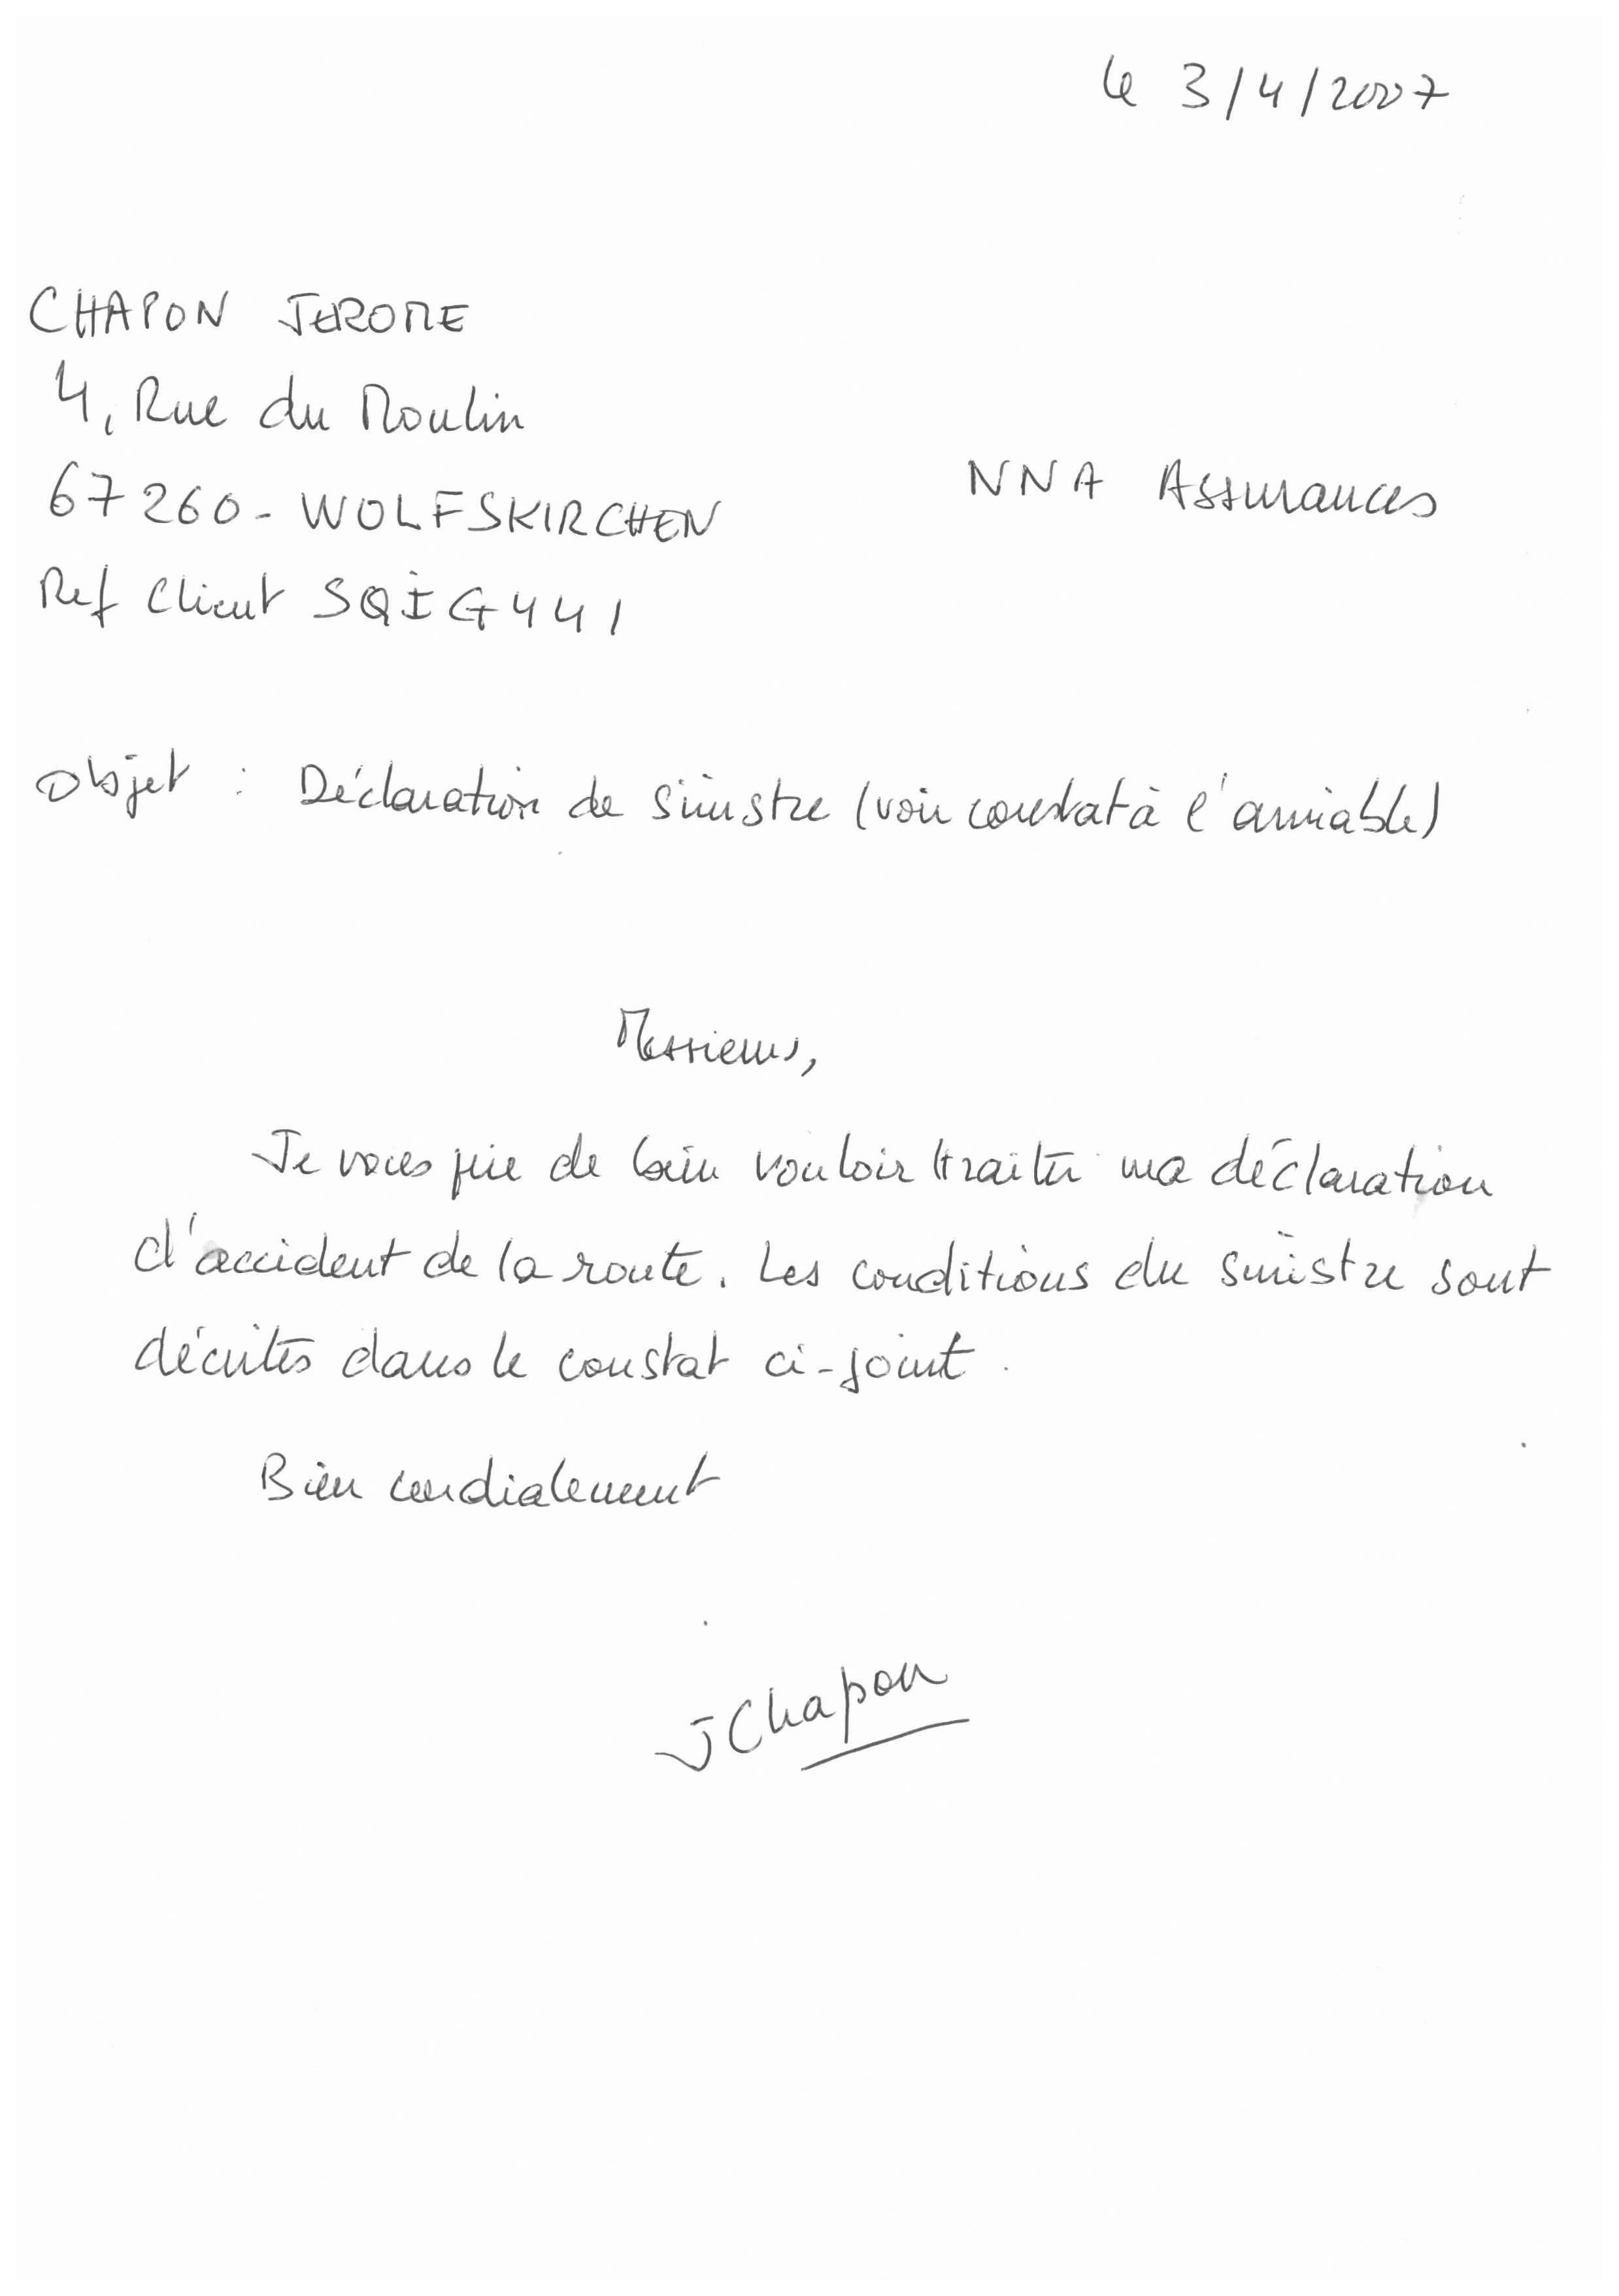 le 3/4/2007
CHAPON JEROME
4, Rue du Moulin
67260 - WOLFSKIRCHEN
NNA Assurances
Ref Client SQIG441
Objet : Déclaration de sinistre (voir constat à l'amiable)
Messieurs,
Je vous prie de bien vouloir traiter ma déclaration
d'accident de la route. Les conditions du sinistre sont
décrites dans le constat ci-joint.
Bien cordialement
JChapon